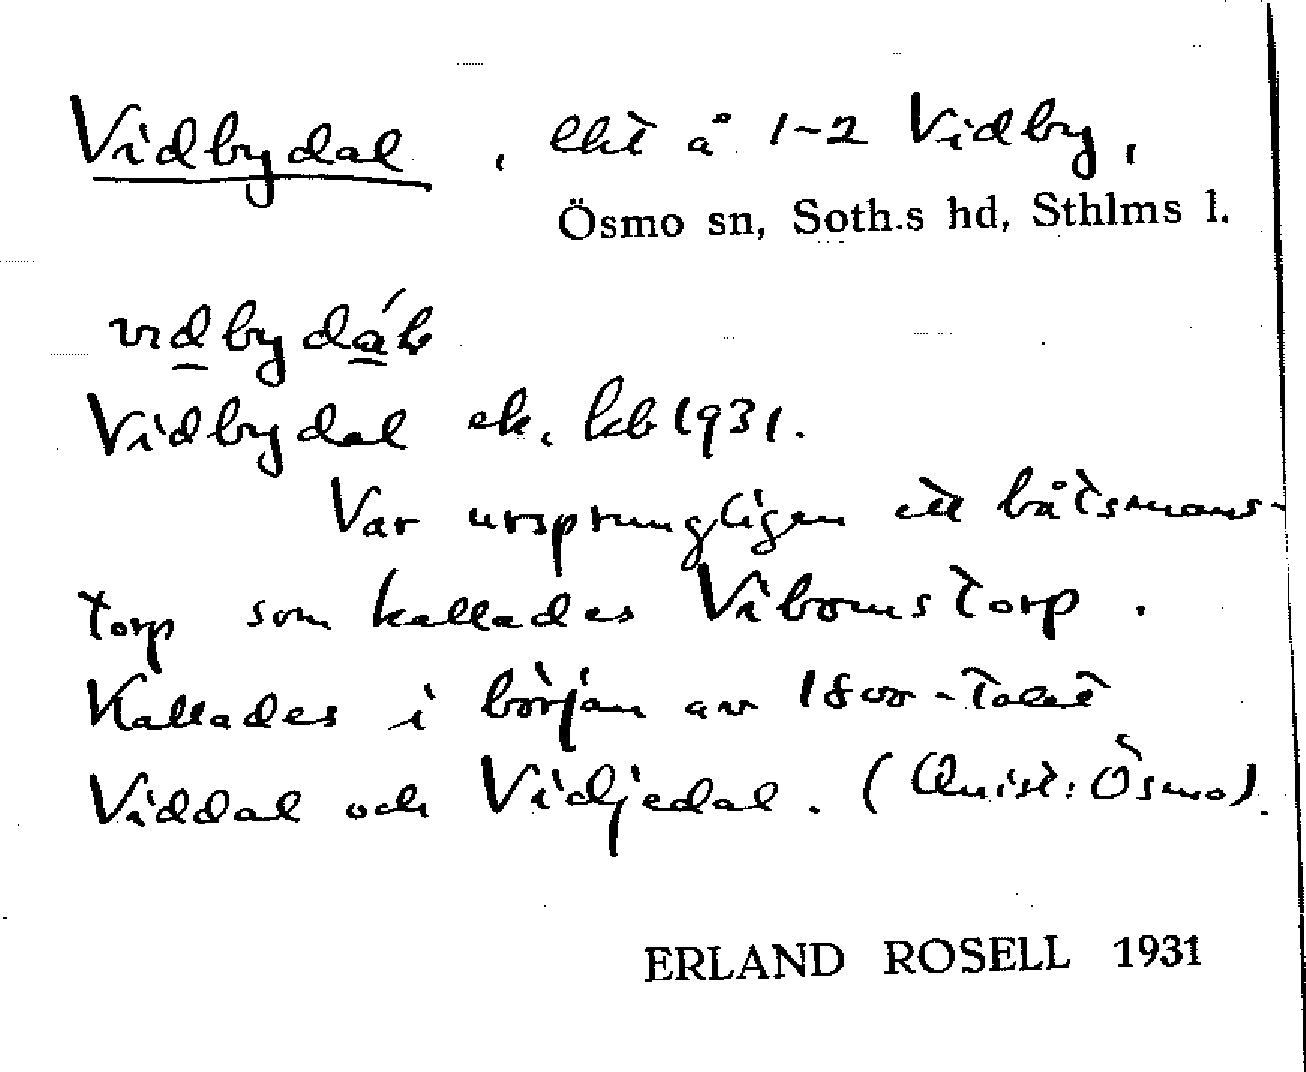 Vidbydal, lht å 1-2 Vidby,
Ösmo sn, Soth.s hd, Sthlms l.
Vidbydal ek. kb 1931.
Var ursprungligen ett båtsmans-
torp som kallades Vibomstorp.
Kallades i början av 1800-talet
Viddal och Vidjedal. (Quist: Ösmo).
ERLAND ROSELL 1931